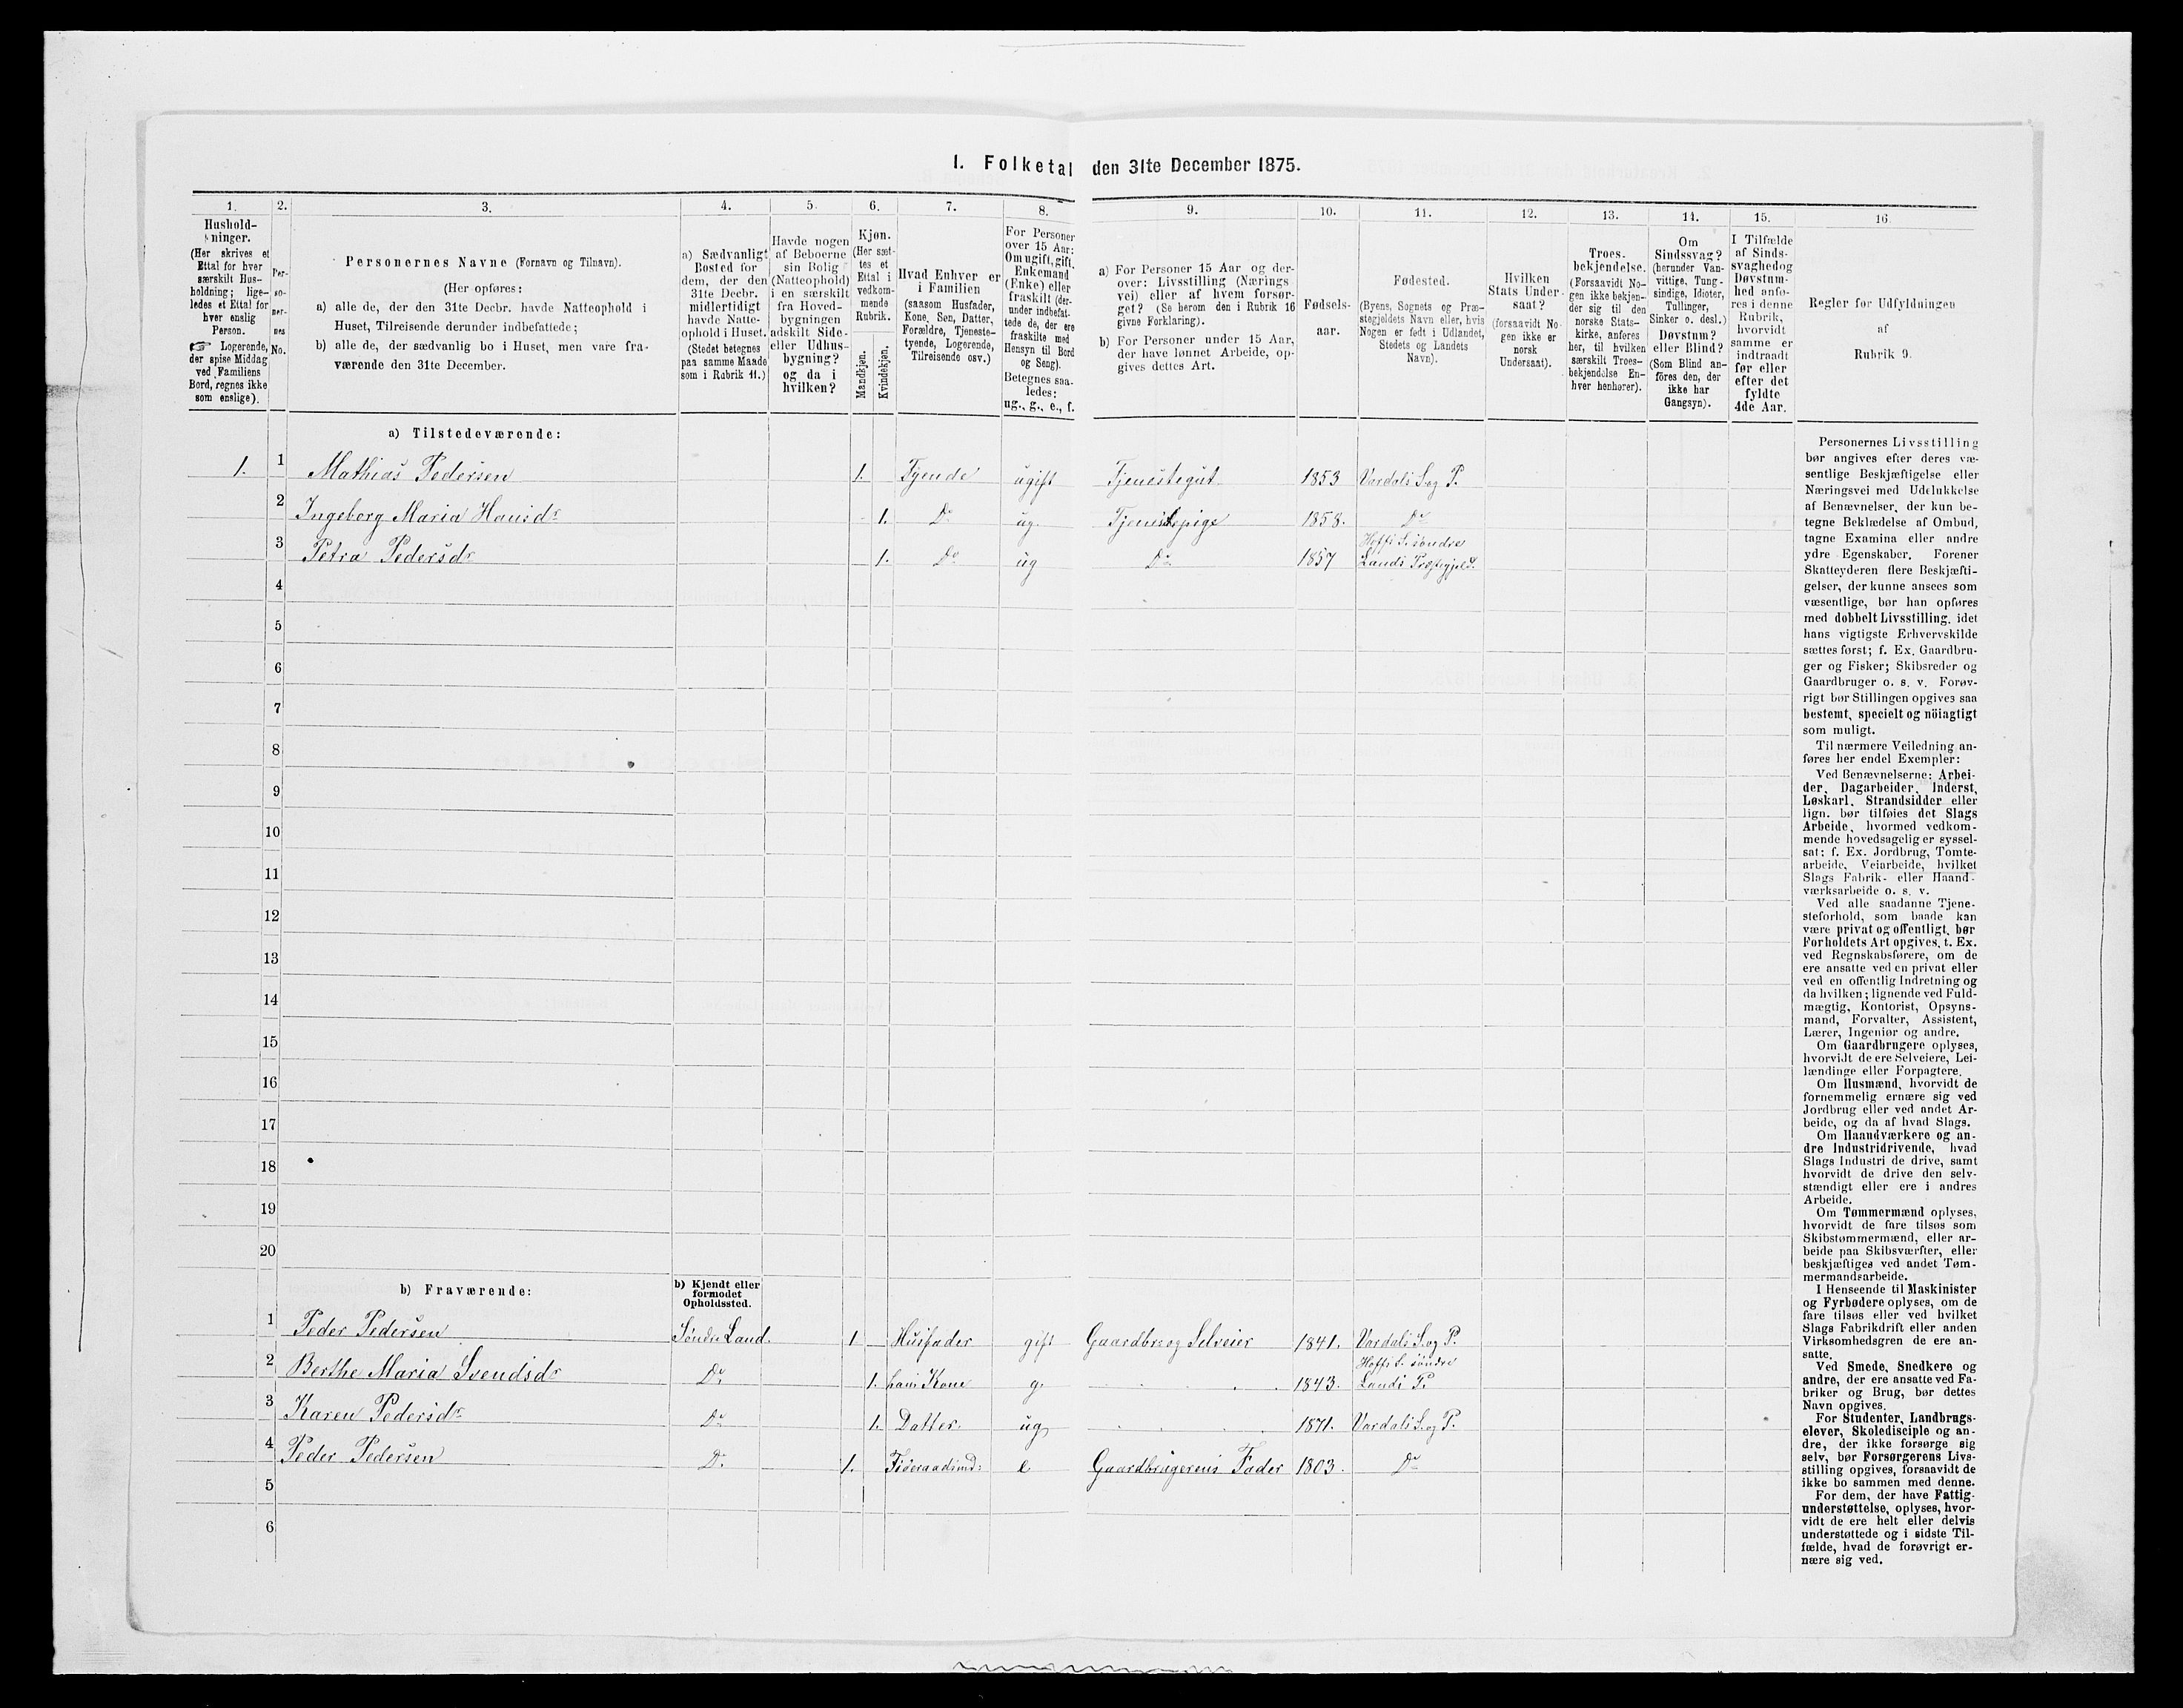 I. Folketal den 31te December 1875.
1. 2. 3. 4. 5. 6. 7. 8. 9. 10. 11. 12. 13. 14. 15. 16.
Hushold-
ninger.
(Her skrives et
Ettal for hver
særskilt Hus-
holdning; lige-
ledes et Ettal for
hver enslig
Person.
☞ Logerende,
der spise Middag
ved Familiens
Bord, regnes ikke
som enslige).
Per-
so-
ner-
nes
No.
Personernes Navne (Fornavn og Tilnavn).
(Her opføres:
a) alle de, der den 31te Decbr. havde Natteophold i
Huset, Tilreisende derunder indbefattede;
b) alle de, der sædvanlig bo i Huset, men vare fra-
værende den 31te December.
a) Sædvanligt
Bosted for
dem, der den
31te Decbr.
midlertidigt
havde Natte-
ophold i Huset.
(Stedet betegnes
paa samme Maade
som i Rubrik 11.)
Havde nogen
af Beboerne
sin Bolig
(Natteophold)
i en særskilt
fra Hoved-
bygningen
adskilt Side-
eller Udhus-
bygning?
og da i
hvilken?
Kjøn.
(Her sæt-
tes et
Ettal i
vedkom-
mende
Rubrik.
Mandkjøn.
Kvindekjøn.
Hvad Enhver er
i Familien
(saasom Husfader,
Kone, Søn, Datter,
Forældre, Tjeneste-
tyende, Logerende,
Tilreisende osv.)
For Personer
over 15 Aar:
Om ugift, gift,
Enkemand
(Enke) eller
fraskilt (der-
under indbefat-
tede de, der ere
fraskilte med
Hensyn til Bord
og Seng).
Betegnes saa-
ledes:
ug., g., e., f.
a) For Personer 15 Aar og der-
over: Livsstilling (Nærings
vei) eller af hvem forsør-
get? (Se herom den i Rubrik 16
givne Forklaring).
b) For Personer under 15 Aar,
der have lønnet Arbeide, op-
gives dettes Art.
Fødsels-
aar.
Fødested.
(Byens, Sognets og Præ-
stegjeldets Navn eller, hvis
Nogen er født i Udlandet,
Stedets og Landets
Navn).
Hvilken
Stats Under-
saat?
(forsaavidt No-
gen ikke er
norsk
Undersaat).
Troes-
bekjendelse.
(Forsaavidt No-
gen ikke bekjen-
der sig til den
norske Stats-
kirke, anføres
her, til hvilken
særskilt Troes-
bekjendelse En-
hver henhører).
Om
Sindssvag?
(herunder Van-
vittige, Tung-
sindige, Idioter,
Tullinger,
Sinker o. desl.)
Døvstum?
eller Blind?
(Som Blind an-
føres den, der
ikke har
Gangsyn).
I Tilfælde
af Sinds-
svaghed og
Døvstum-
hed anfø-
res i denne
Rubrik,
hvorvidt
samme er
indtraadt
før eller
efter det
fyldte
4de Aar.
Regler for Udfyldningen
af
Rubrik 9.
a) Tilstedeværende:
1. 1 Mathias Pedersen 1. Tyende ugift Tjenestegut 1853 Vardals S. og P.
2 Ingeborg Maria Hansdr 1. Do ug. Tjenestepige 1858. Do
3 Petra Pedersdr 1. Do ug Do 1857 Hoffs S. söndre
Lands Præstegjeld.
4
5
6
7
8
9
10
11
12
13
14
15
16
17
18
19
20
b) Fraværende:
b) Kjendt eller
formodet
Opholdssted.
1 Peder Pedersen Søndre Land. 1 Husfader gift Gaardbr. og Selveier 1841. Vardals S. og P.
2 Berthe Maria Svendsdr Do 1. hans Kone g. 1843. Hoffs S. söndre
Lands P.
3 Karen Pedersdr Do 1. Datter ug 1871. Vardals S. og P.
4 Peder Pedersen Do 1. Föderaadsmd: e Gaardbrugerens Fader 1803. Do
5
6
Personernes Livsstilling
bør angives efter deres væ-
sentlige Beskjæftigelse eller
Næringsvei med Udelukkelse
af Benævnelser, der kun be-
tegne Beklædelse af Ombud,
tagne Examina eller andre
ydre Egenskaber. Forener
Skatteyderen flere Beskjæfti-
gelser, der kunne ansees som
væsentlige, bør han opføres
med dobbelt Livsstilling, idet
hans vigtigste Erhvervskilde
sættes først; f. Ex. Gaardbru-
ger og Fisker; Skibsreder og
Gaardbruger o. s. v. Forøv-
rigt bør Stillingen opgives saa
bestemt, specielt og nöiagtigt
som muligt.
Til nærmere Veiledning an-
føres her endel Exempler:
Ved Benævnelserne: Arbei-
der, Dagarbeider, Inderst,
Løskarl, Strandsidder eller
lign. bør tilføies det Slags
Arbeide, hvormed vedkom-
mende hovedsagelig er syssel-
sat; f. Ex. Jordbrug, Tomte-
arbeide, Veiarbeide, hvilket
Slags Fabrik- eller Haand-
værksarbeide o. s. v.
Ved alle saadanne Tjene-
steforhold, som baade kan
være privat og offentligt, bør
Forholdets Art opgives, t. Ex.
ved Regnskabsførere, om de
ere ansatte ved en privat eller
ved en offentlig Indretning og
da hvilken; lignende ved Fuld-
mægtig, Kontorist, Opsyns-
mand, Forvalter, Assistent,
Lærer, Ingeniør og andre.
Om Gaardbrugere oplyses,
hvorvidt de ere Selveiere, Lei-
lændinge eller Forpagtere.
Om Husmænd, hvorvidt de
fornemmelig ernære sig ved
Jordbrug eller ved andet Ar-
beide, og da af hvad Slags.
Om Haandværkere og an-
dre Industridrivende, hvad
Slags Industri de drive, samt
hvorvidt de drive den selv-
stændigt eller ere i andres
Arbeide.
Om Tømmermænd oplyses,
hvorvidt de fare tilsøs som
Skibstømmermænd, eller ar-
beide paa Skibsværfter, eller
beskjæftiges ved andet Tøm-
mermandsarbeide.
I Henseende til Maskinister
og Fyrbødere oplyses, om de
fare tilsøs eller ved hvilket
Slags Fabrikdrift eller anden
Virksomhedsgren de ere an-
satte.
Ved Smede, Snedkere og
andre, der ere ansatte ved Fa-
briker og Brug, bør dettes
Navn opgives.
For Studenter, Landbrugs-
elever, Skoledisciple og an-
dre, der ikke forsørge sig
selv, bør Forsørgerens Livs-
stilling opgives, forsaavidt de
ikke bo sammen med denne.
For dem, der have Fattig-
understøttelse, oplyses, hvor-
vidt de ere helt eller delvis
understøttede og i sidste Til-
fælde, hvad de forøvrigt er-
nære sig ved.